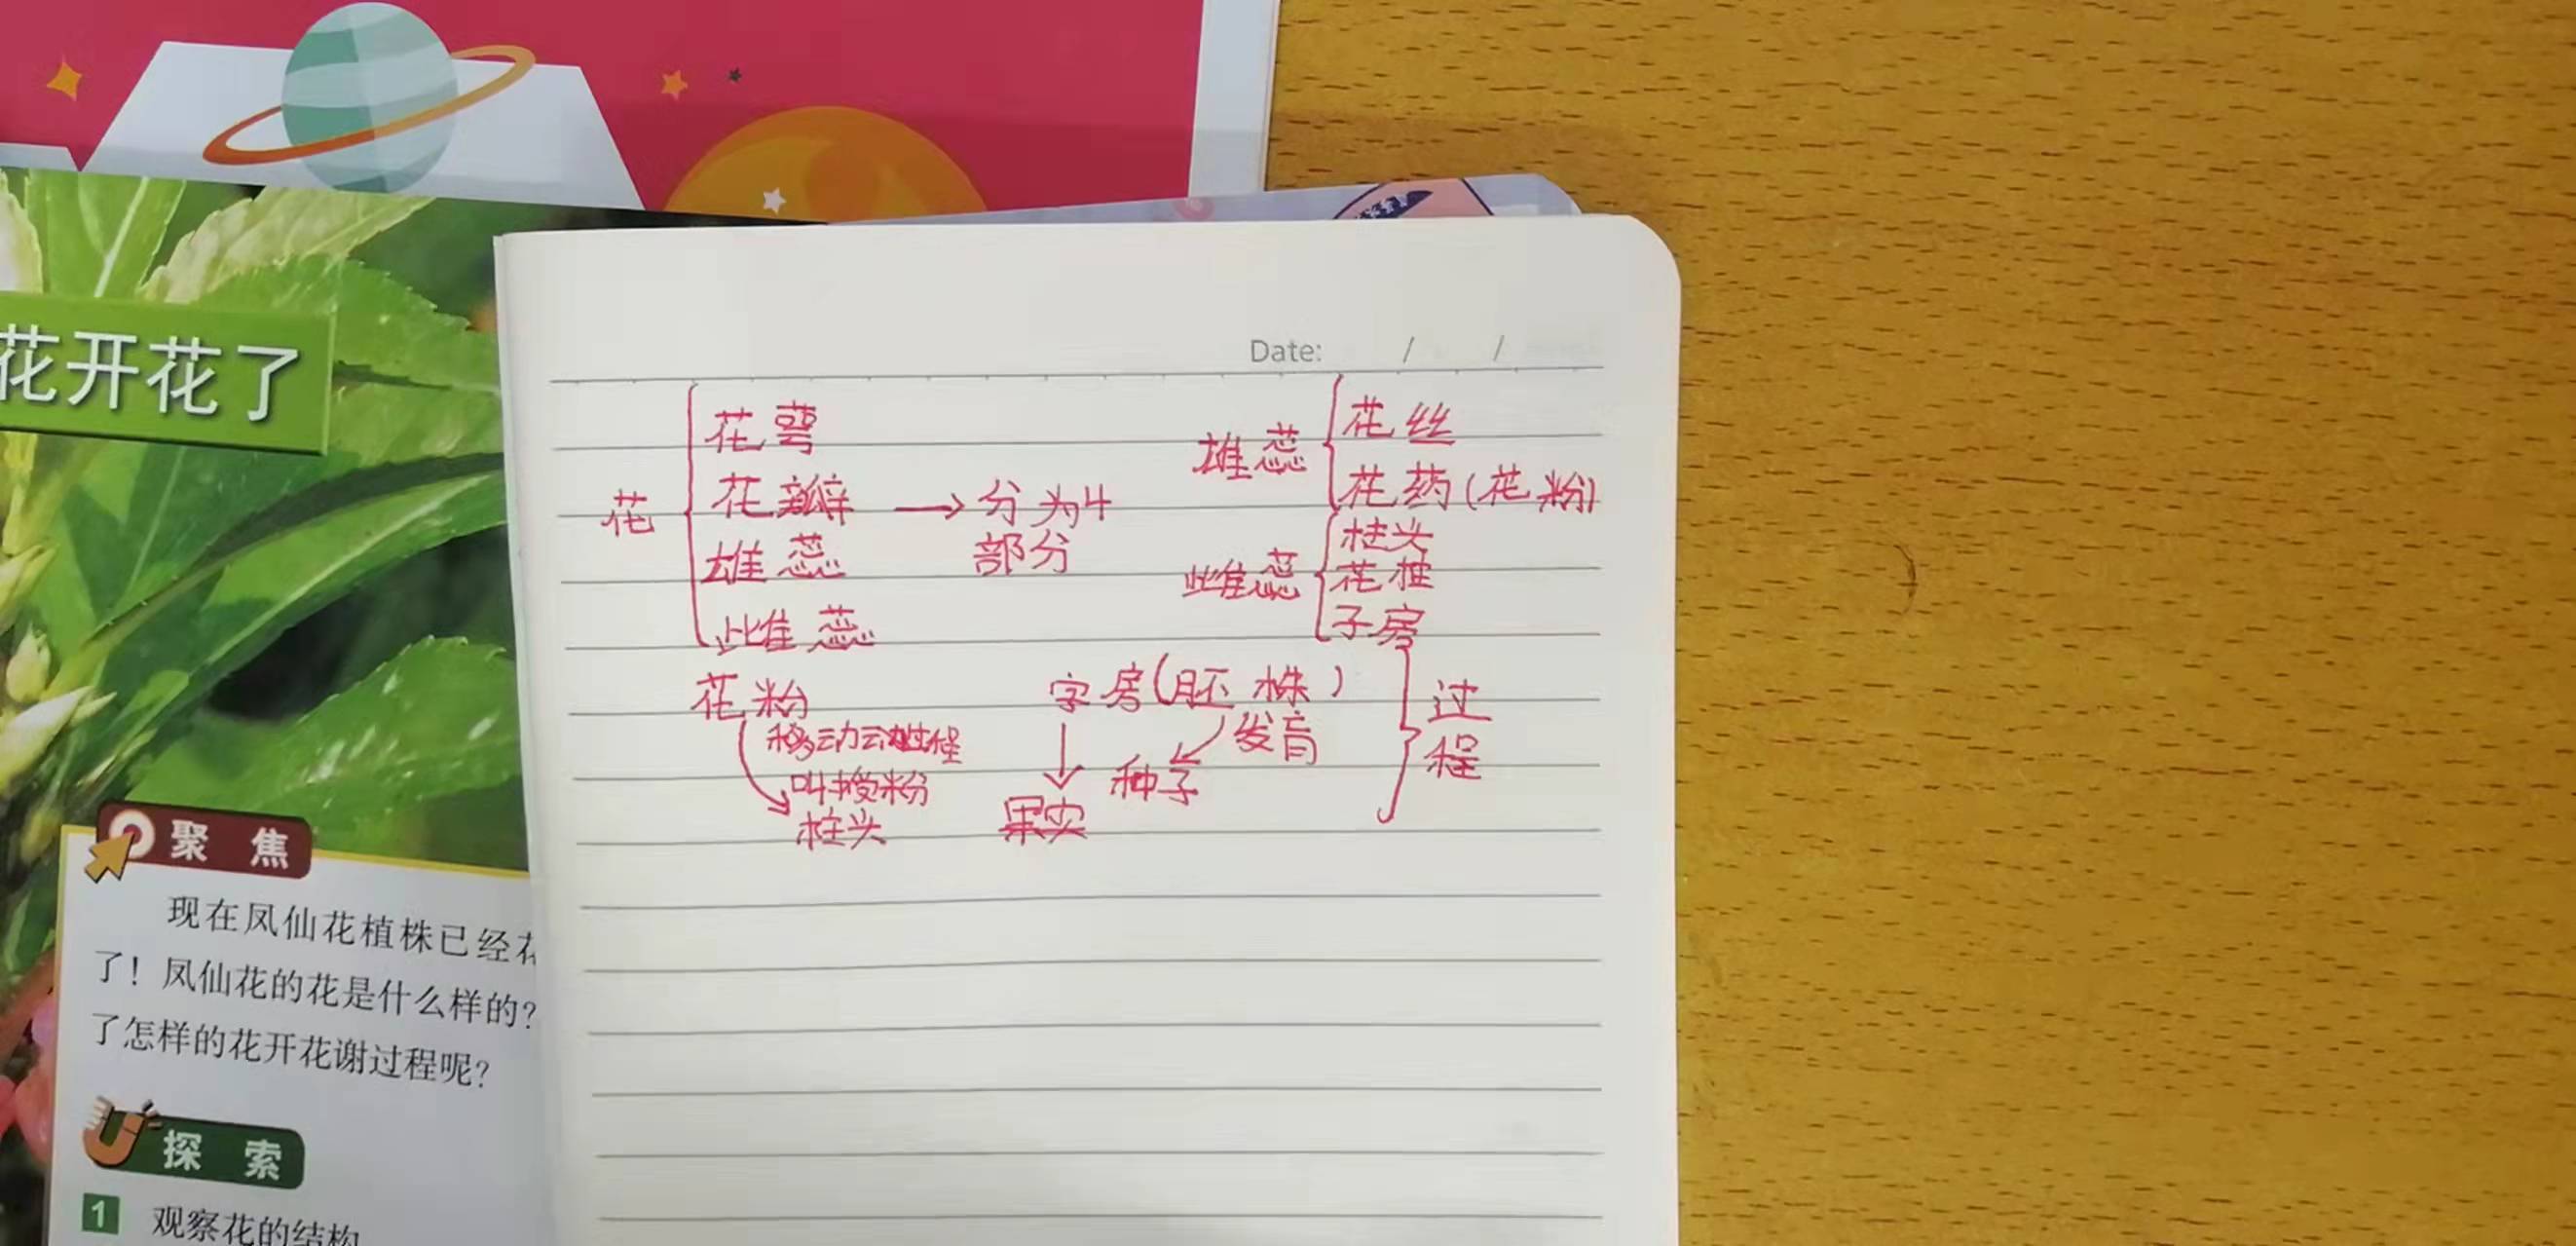 花开花了
Date: / /
花
花萼
花瓣 → 分为4
部分
雄蕊
雌蕊
雄蕊
花丝
花药(花粉)
雌蕊
柱头
花柱
子房
花粉
移动动过程
叫授粉
柱头
字房(胚株)
发育
果实
种子
过
程
聚焦
现在凤仙花植株已经花
了！凤仙花的花是什么样的？
了怎样的花开花谢过程呢？
探索
1 观察花的结构